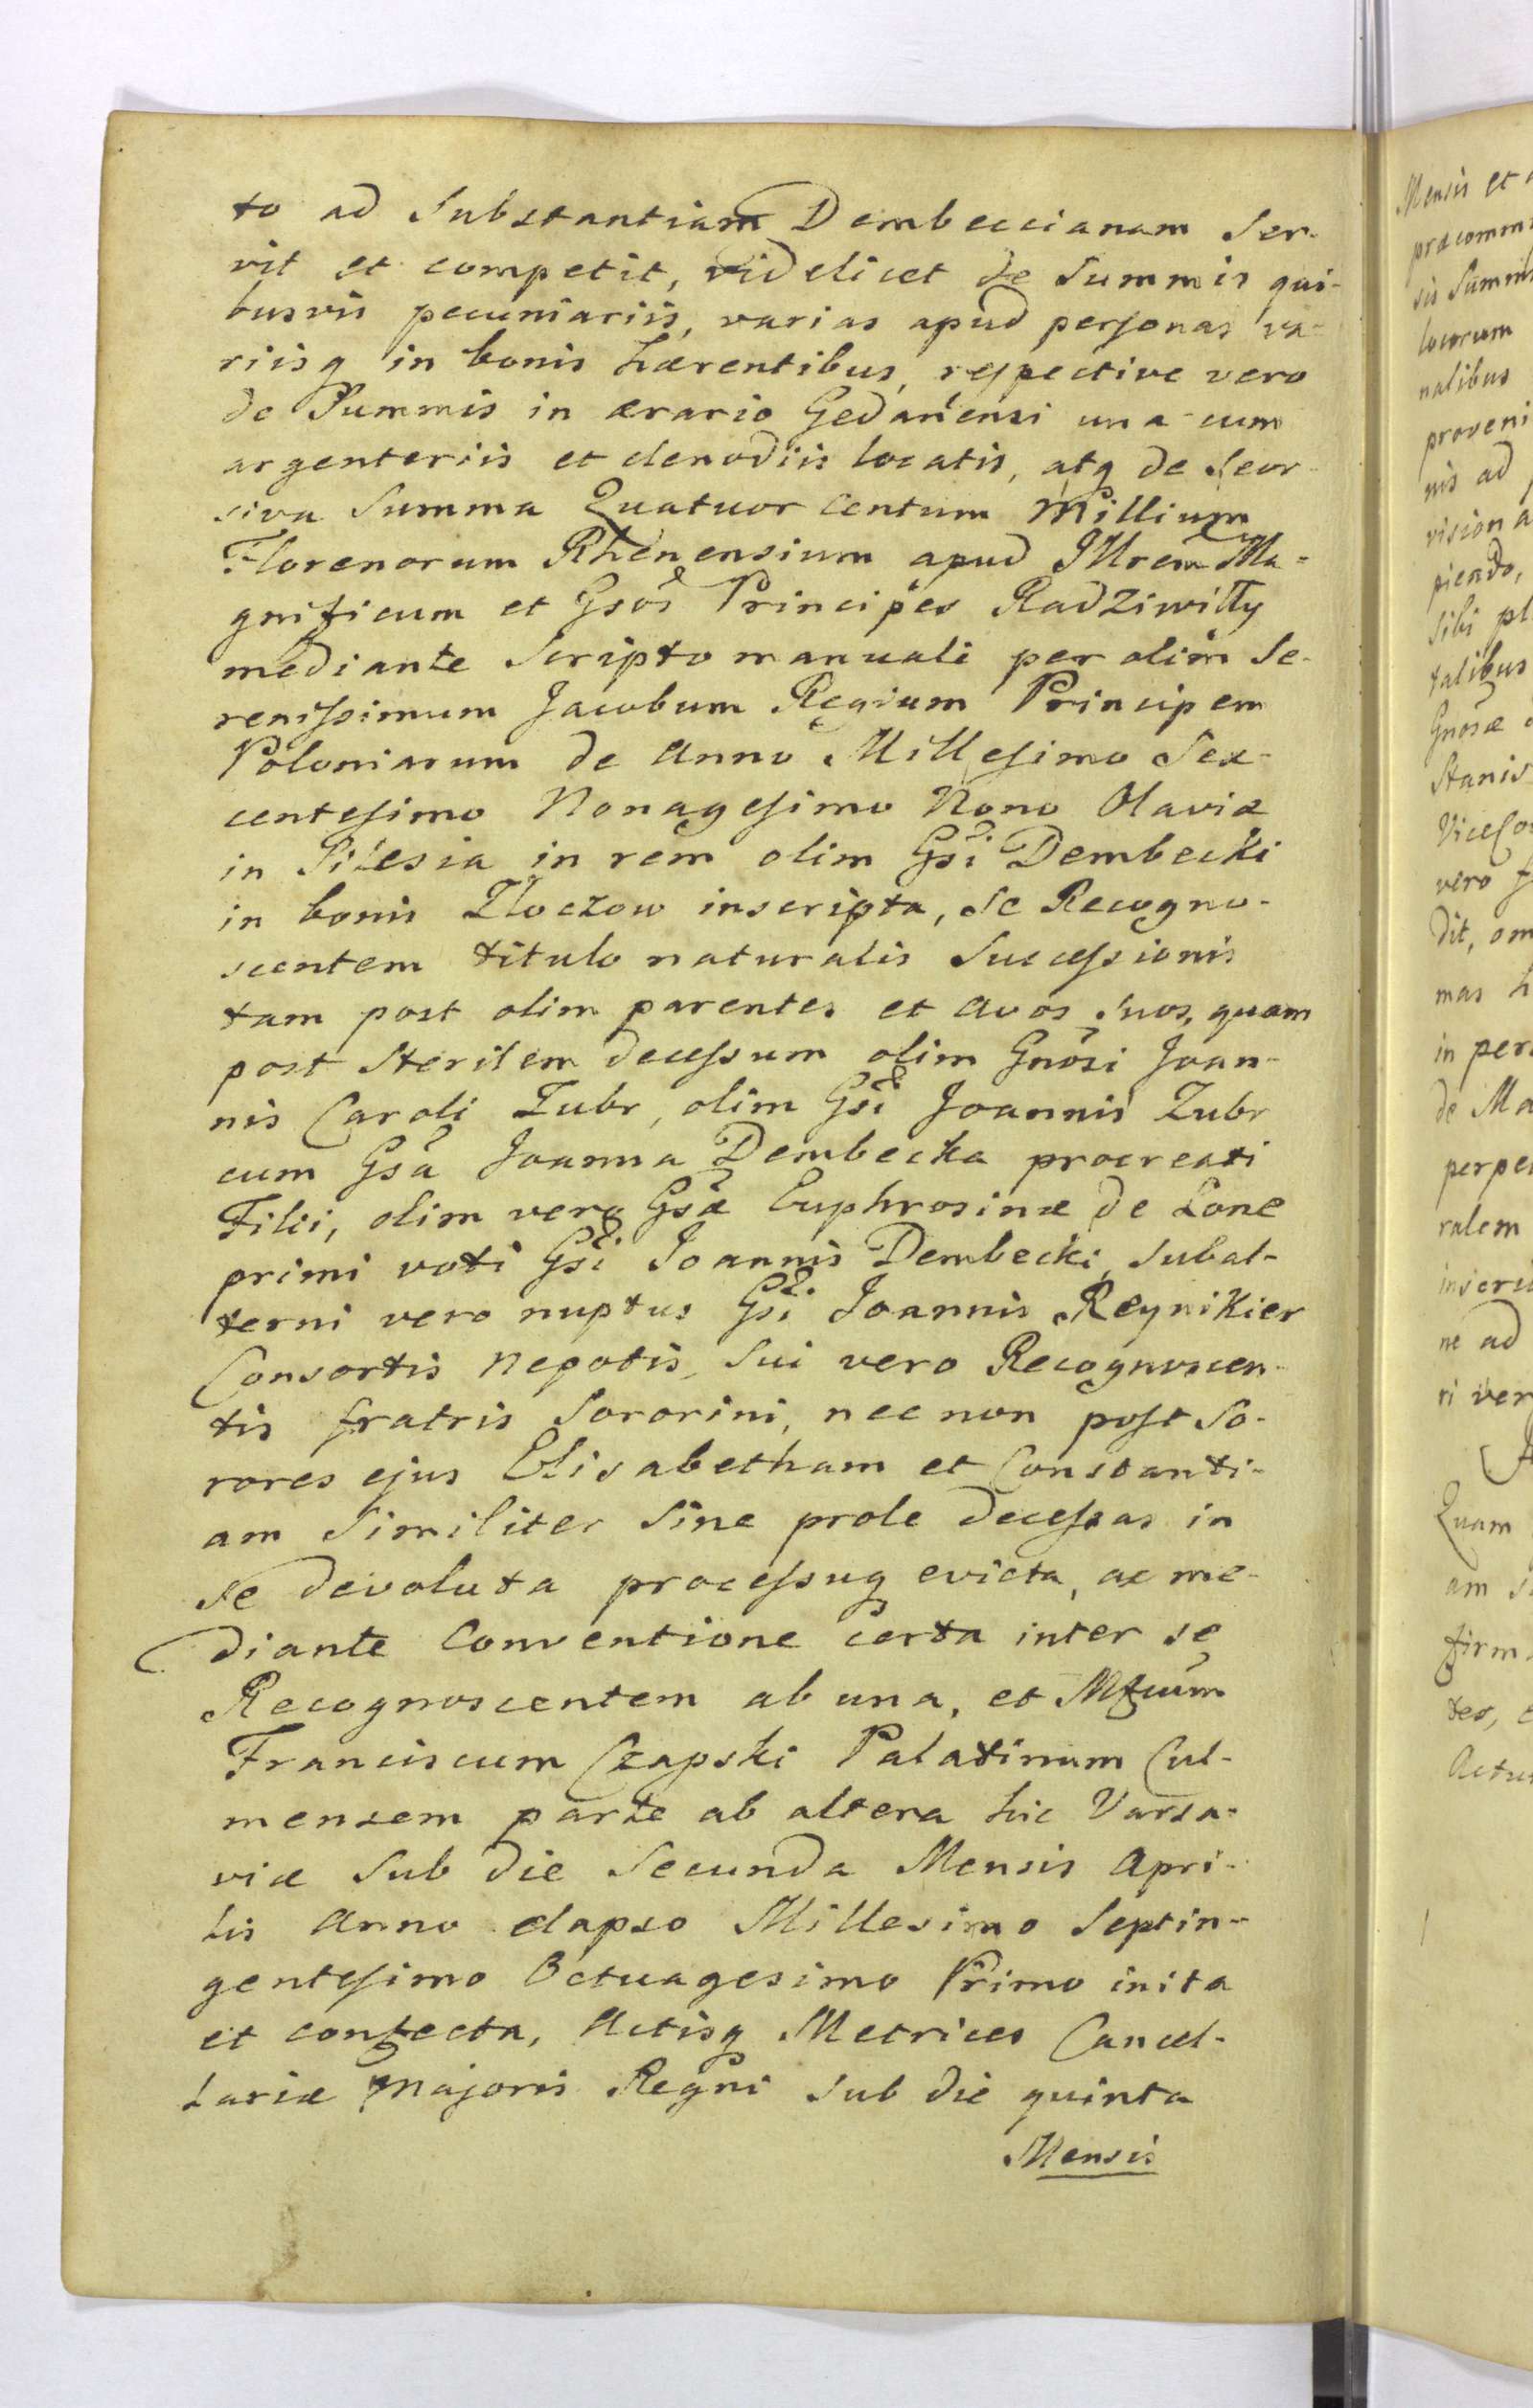 to ad Substantiam Dembeccianam Ser-
vit et competit, videlicet de Summis qui-
busvis pecuniariis, varias apud personas va-
riisq in bonis hærentibus, respective vero
de Summis in ærario Gedanensi una cum
argenteriis et clenodiis locatis, atq de Seor-
siva Summa Quatuor Centum Millium
Florenorum Rhenensium apud Illrem Ma-
gnificum et Gsos Principes Radziwiłły
mediante Scripto manuali per olim Se-
renissimum Jacobum Regium Principem
Poloniarum de Anno Millesimo Sex-
centesimo Nonagesimo Nono Olaviæ
in Silesia in rem olim Gsi Dembecki
in bonis Zloczow inscripta, Se Recogno-
scentem titulo naturalis Successionis
tam post olim parentes et Avos Suos, quam
post Sterilem decessum olim Gnosi Joan-
nis Caroli Zubr, olim Gsi Joannis Zubr
cum Gsa Joanna Dembecka procreati
Filii, olim vero Gsæ Euphrosinæ de Lone
primi voti Gsi Joannis Dembecki, Subal-
terni vero nuptus Gsi Joannis Reynikier
Consortis Nepotis, Sui vero Recognoscen-
tis fratris Sororini, nec non post So-
rores ejus Elisabetham et Constanti-
am Similiter Sine prole decessas in
se devoluta processuq evicta, ac me-
diante Conventione certa inter se
Recognoscentem ab una, et Mfcum
Franciscum Czapski Palatinum Cul-
mensem parte ab altera hic Varsa-
viæ Sub die Secunda Mensis Apri-
lis Anno elapso Millesimo Septin-
gentesimo Octuagesimo Primo inita
et confecta, Actisq Metrices Cancel-
lariæ Majoris Regni Sub die quinta
Mensis
Mensis et
præcomm
sis Summis
locorum
nalibus
proveni
nis ad
vision
piendo,
Sibi pl
talibus
Gnosæ
Stanis
ViceCo
vero
dit, om
mas h
in per
de Ma
perpe
ralem
inscri
ne ad
ri ver
Quam
am
firm
tes,
Actu